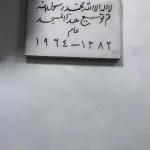 لا اله الا الله محمد رسول الله
تم توسيع هذا المسجد
عام
١٣٨٣ - ١٩٦٤